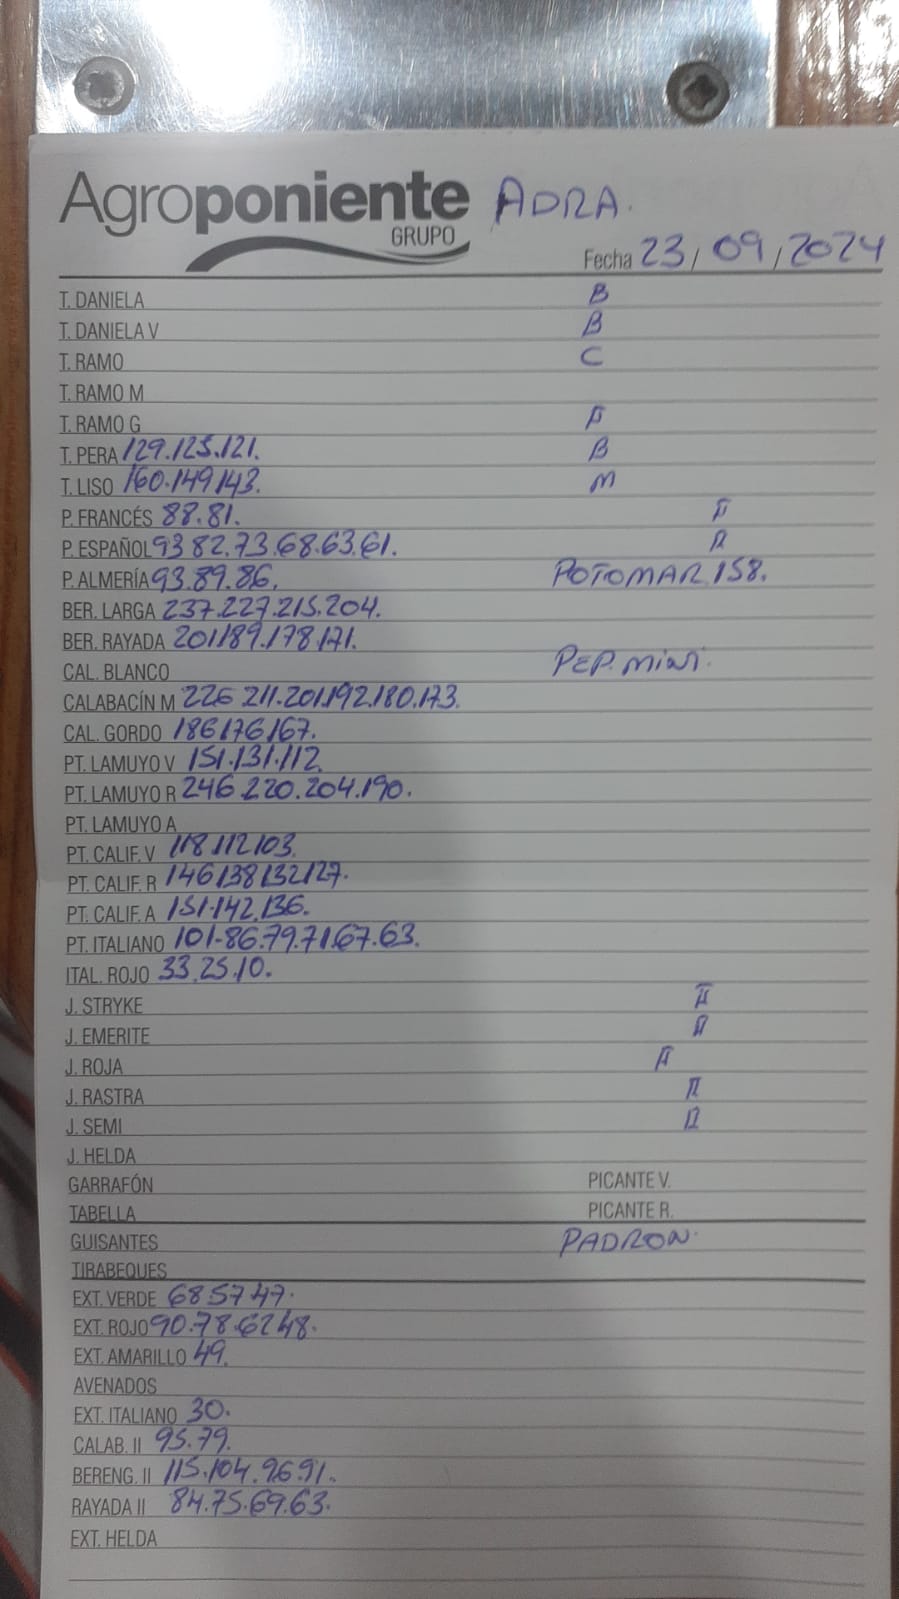 Agroponiente ADRA.
GRUPO
Fecha 23/09/2024
T. DANIELA B
T. DANIELA V B
T. RAMO C
T. RAMO M
T. RAMO G
T. PERA 129.125.121. B
T. LISO 160.149.143. M
P. FRANCÉS 88.81.
P. ESPAÑOL 93 82.73.68.63.61.
P. ALMERÍA 93.89.86. POTOMAR 158.
BER. LARGA 237.227.215.204.
BER. RAYADA 201.189.178.171.
CAL. BLANCO PEP. MINI.
CALABACÍN M 226 211.201.192.180.173.
CAL. GORDO 186.176.167.
PT. LAMUYO V 151.131.112
PT. LAMUYO R 246.220.204.190.
PT. LAMUYO A
PT. CALIF. V 118.112.103.
PT. CALIF. R 146.138.132.127.
PT. CALIF. A 151.142.136.
PT. ITALIANO 101-86.79.71.67.63.
ITAL. ROJO 33.25.10.
J. STRYKE
J. EMERITE
J. ROJA
J. RASTRA
J. SEMI
J. HELDA
GARRAFÓN PICANTE V.
TABELLA PICANTE R.
GUISANTES PADRON.
TIRABEQUES
EXT. VERDE 68.57.47.
EXT. ROJO 90.78.62.48.
EXT. AMARILLO 49.
AVENADOS
EXT. ITALIANO 30.
CALAB. II 95.79.
BERENG. II 115.104.96.91.
RAYADA II 84.75.69.63.
EXT. HELDA